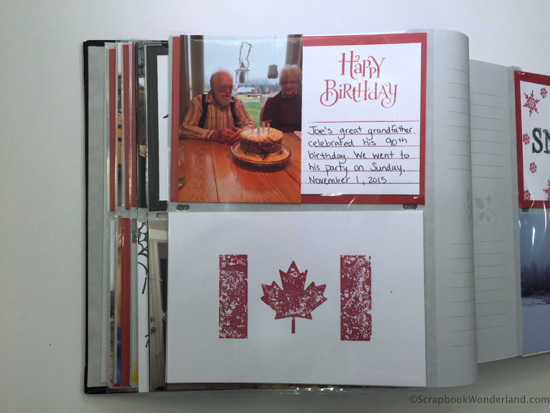 HAPPY
BIRTHDAY
Joe's great grandfather
celebrated his 90th
birthday. We went to
his party on Sunday,
November 1, 2015.
SN
©ScrapbookWonderland.com